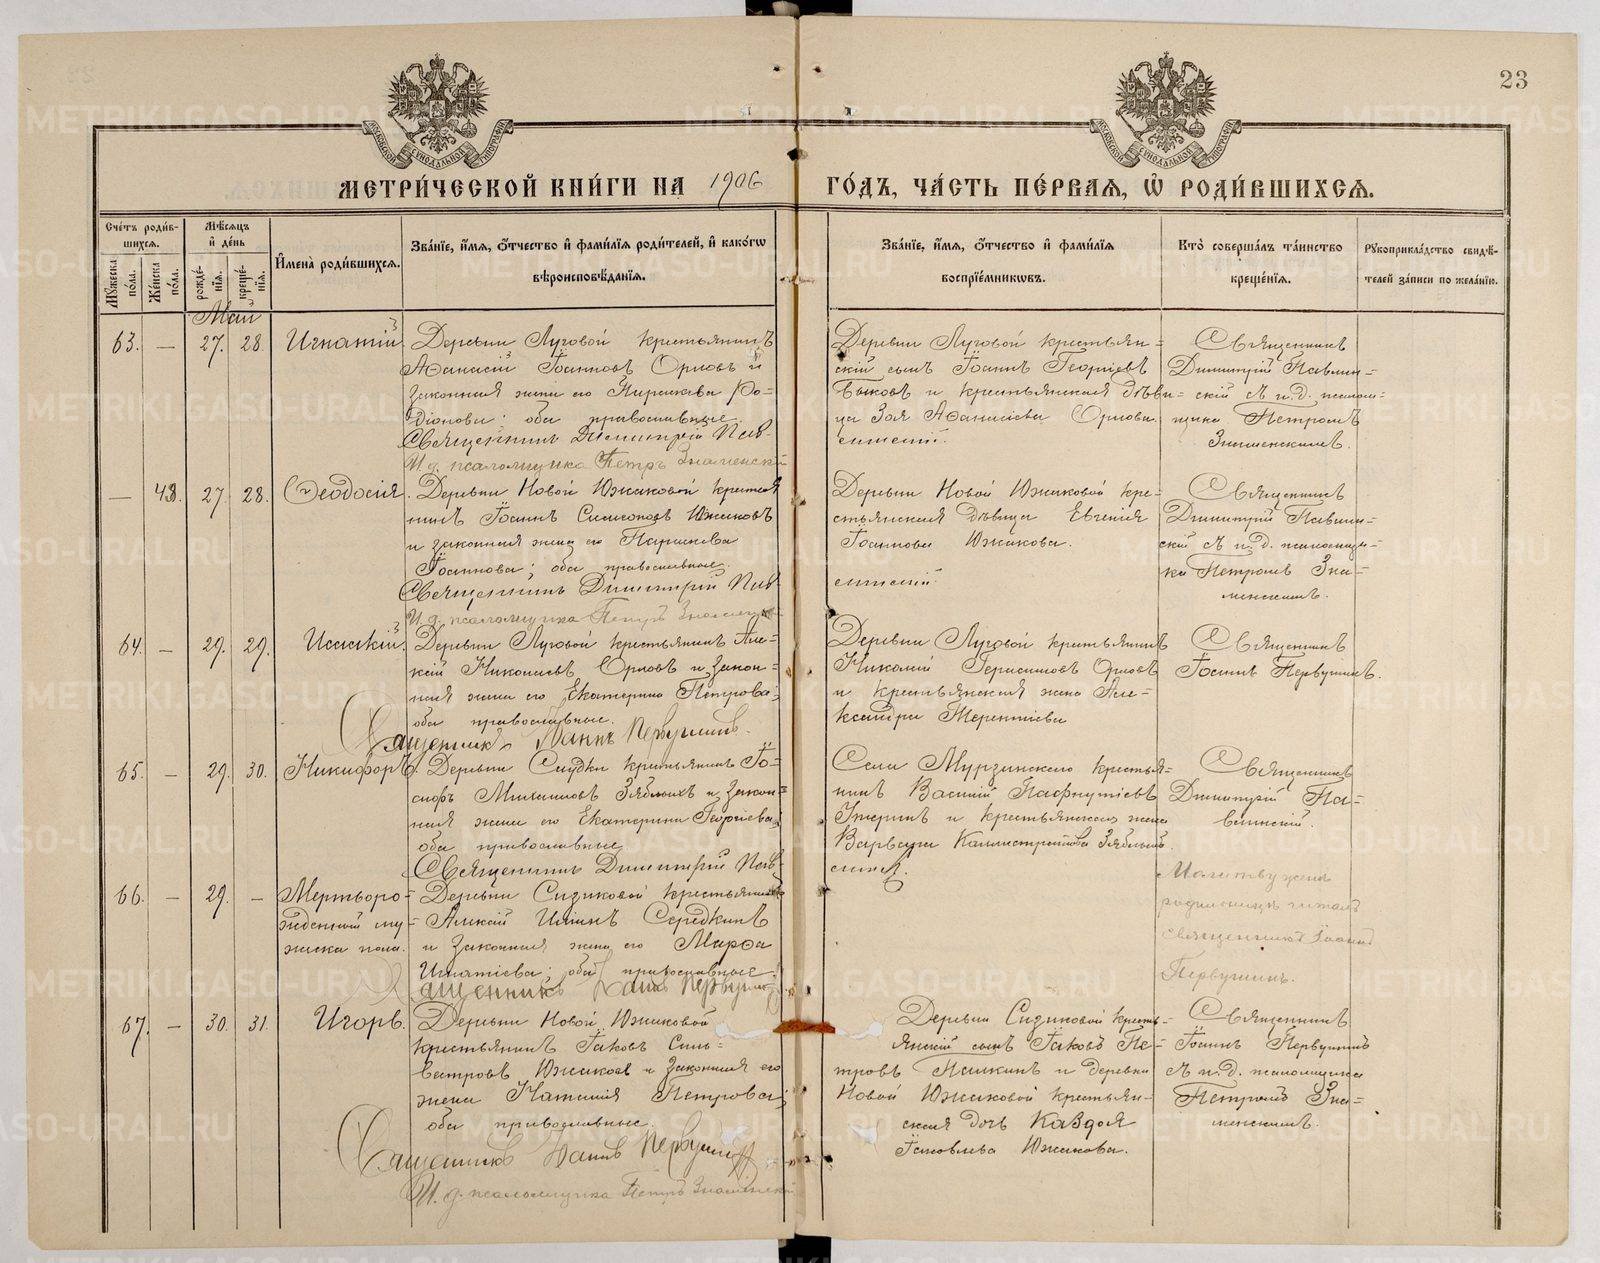 23
МЕТРИ́ЧЕСКОЙ КНИ́ГИ НА 1906 ГО́ДЪ, ЧА́СТЬ ПЕ́РВАЯ, Ѡ҆ РОДИ́ВШИХСЯ.
Сче́тъ роди́в-
шихся.
Мꙋ́жеска по́ла.
Же́нска по́ла.
Мѣ́сяцъ
и҆ де́нь
рожде́-
нїя.
креще́-
нїя.
И҆мена̀ роди́вшихся.
Зва́нїе, и҆́мя, ѻ҆́тчество и҆ фами́лїя роди́телей, и҆ како́гѡ
вѣроисповѣ́данїя.
Зва́нїе, и҆́мя, ѻ҆́тчество и҆ фами́лїя
воспрїе́мникѡвъ.
Кто̀ соверша́лъ та́инство
креще́нїя.
Рꙋкоприкла́дство свидѣ́-
телей за́писи по жела́нїю.
Май
63. — 27. 28. Игнатій
Деревни Луговой крестьянинъ
Аѳанасій Іоанновъ Орловъ и
законная жена его Параскева Ро-
діонова; оба православные.
Священникъ Димитрій Пав-
И. д. псаломщика Петръ Знаменскій
Деревни Луговой крестьян-
скій сынъ Іоаннъ Георгіевъ
Быковъ и крестьянская дѣви-
ца Зоя Аѳанасіева Орлова.
линскій.
Священникъ
Димитрій Павлин-
скій съ и. д. псалом-
щика Петромъ
Знаменскимъ.
— 43. 27. 28. Ѳеодосія.
Деревни Новой Южаковой крестья
нинъ Іоаннъ Симеоновъ Южаковъ
и законная жена его Параскева
Іоаннова; оба православные.
Священникъ Димитрій Пав
И. д. псаломщика Петръ Знаменскій
Деревни Новой Южаковой кре-
стьянская дѣвица Евгенія
Іоаннова Южакова.
линскій.
Священникъ
Димитрій Павлин-
скій съ и. д. псаломщи-
ка Петромъ Зна-
менскимъ.
64. — 29. 29. Исаакій.
Деревни Луговой крестьянинъ Але-
ксій Николаевъ Орловъ и закон-
ная жена его Екатерина Петрова;
оба православные.
Священникъ Іоаннъ Первушинъ.
Деревни Луговой крестьянинъ
Николай Герасимовъ Орловъ
и крестьянская жена Але-
ксандра Терентіева
Священникъ
Іоаннъ Первушинъ.
65. — 29. 30. Никифоръ.
Деревни Слудки крестьянинъ Іо-
сифъ Михаиловъ Зяблыхъ и закон-
ная жена его Екатерина Георгіева
оба православные
Священникъ Димитрій Пав-
Села Мурзинскаго крестья-
нинъ Василій Пафнутіевъ
и крестьянская жена
Варвара Каллистратова Зяблыхъ.
линскій.
Священникъ
Димитрій Па-
влинскій.
66. — 29. — Мертворо-
жденный му-
жеска пола.
Деревни Сизиковой крестьянинъ
Алексій Іоаннъ Середкинъ
и законная жена его Марѳа
Игнатіева; оба православные.
Священникъ Іоаннъ Первушинъ
Молитву женѣ
родильницѣ читалъ
священникъ Іоаннъ
Первушинъ.
67. — 30. 31. Игорь.
Деревни Новой Южаковой
крестьянинъ Іаковъ Силь-
вестровъ Южаковъ и законная его
жена Наталія Петрова;
оба православные.
Священникъ Іоаннъ Первушинъ
И. д. псаломщика Петръ Знаменскій
Деревни Сизиковой кресть-
янскій сынъ Іаковъ Пе-
тровъ Палкинъ и деревни
Новой Южаковой крестьян-
ская дочь Клавдія
Іаковлева Южакова.
Священникъ
Іоаннъ Первушинъ
съ и. д. псаломщика
Петромъ Зна-
менскимъ.
METRIKI.GASO-URAL.RU